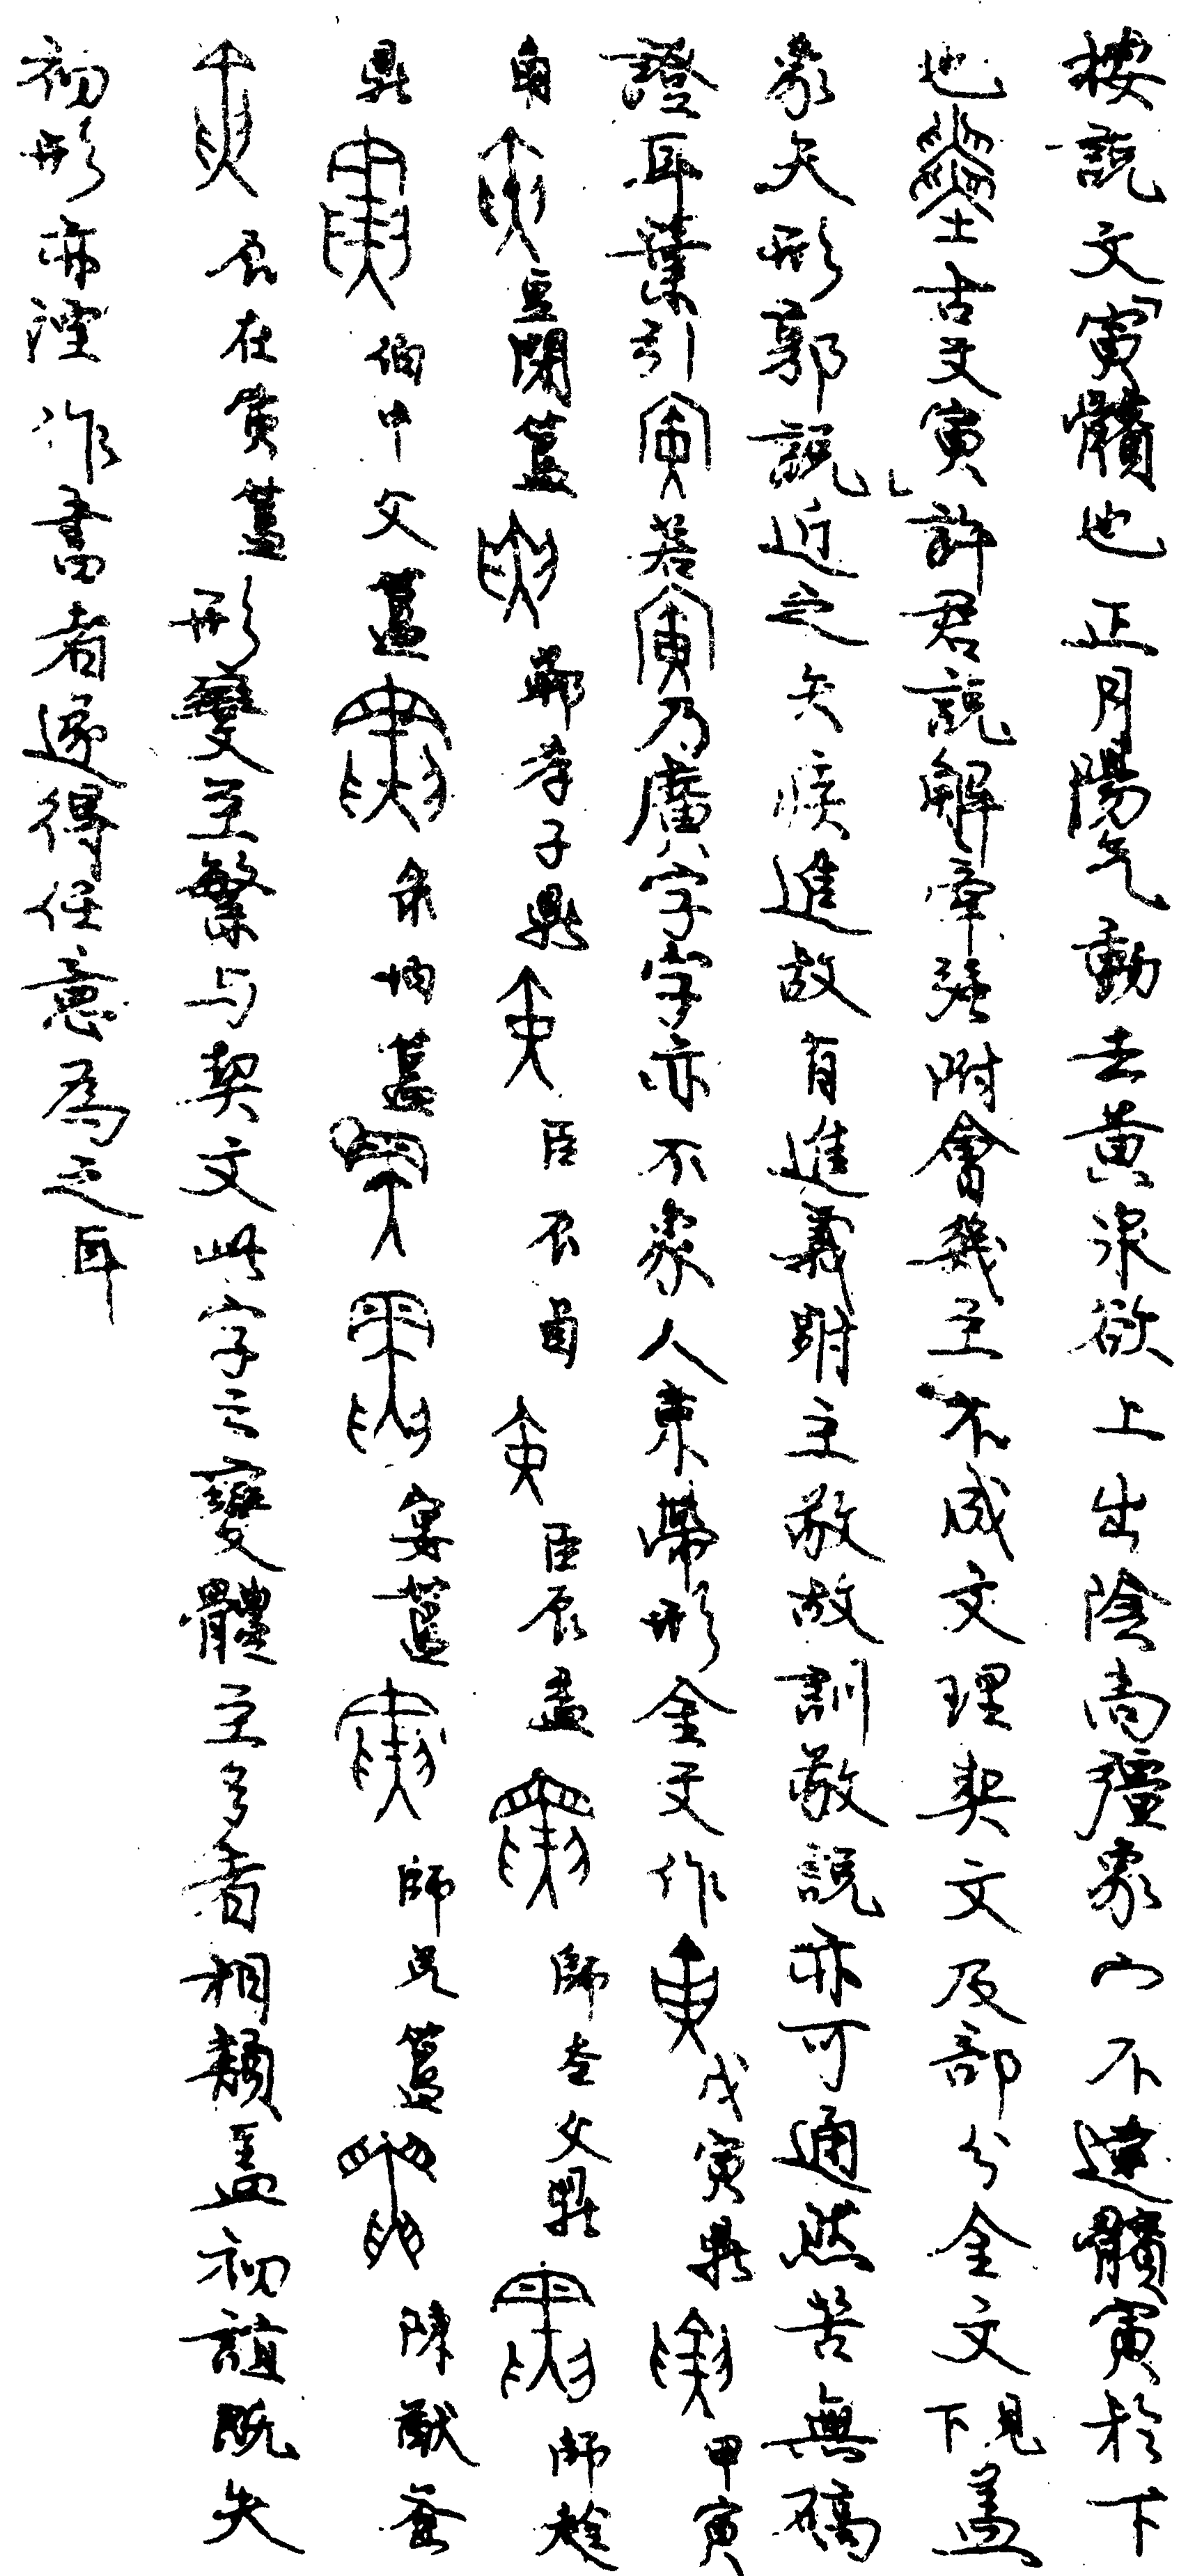 按說文「寅髕也正月陽气動去黃泉欲上出陰尚彊象宀不達髕寅於下
也古文寅」許君說解牽強附會幾至不成文理契文及部分金文見下蓋
象矢形郭說近之矢疾進故有進義引申主敬故訓敬說亦可通然苦無碻
證耳葉引若乃廣字字亦不象人束帶形金文作戊寅鼎甲寅
角豆閉簋鄲孝子鼎臣辰卣臣辰盉師㚓父鼎師趛
鼎伯中父簋彔伯簋宴簋師兌簋陳猷釜
辰在寅簋形變至繁与契文此字之變體至多者相類蓋初誼既失
初形亦湮作書者遂得任意為之耳